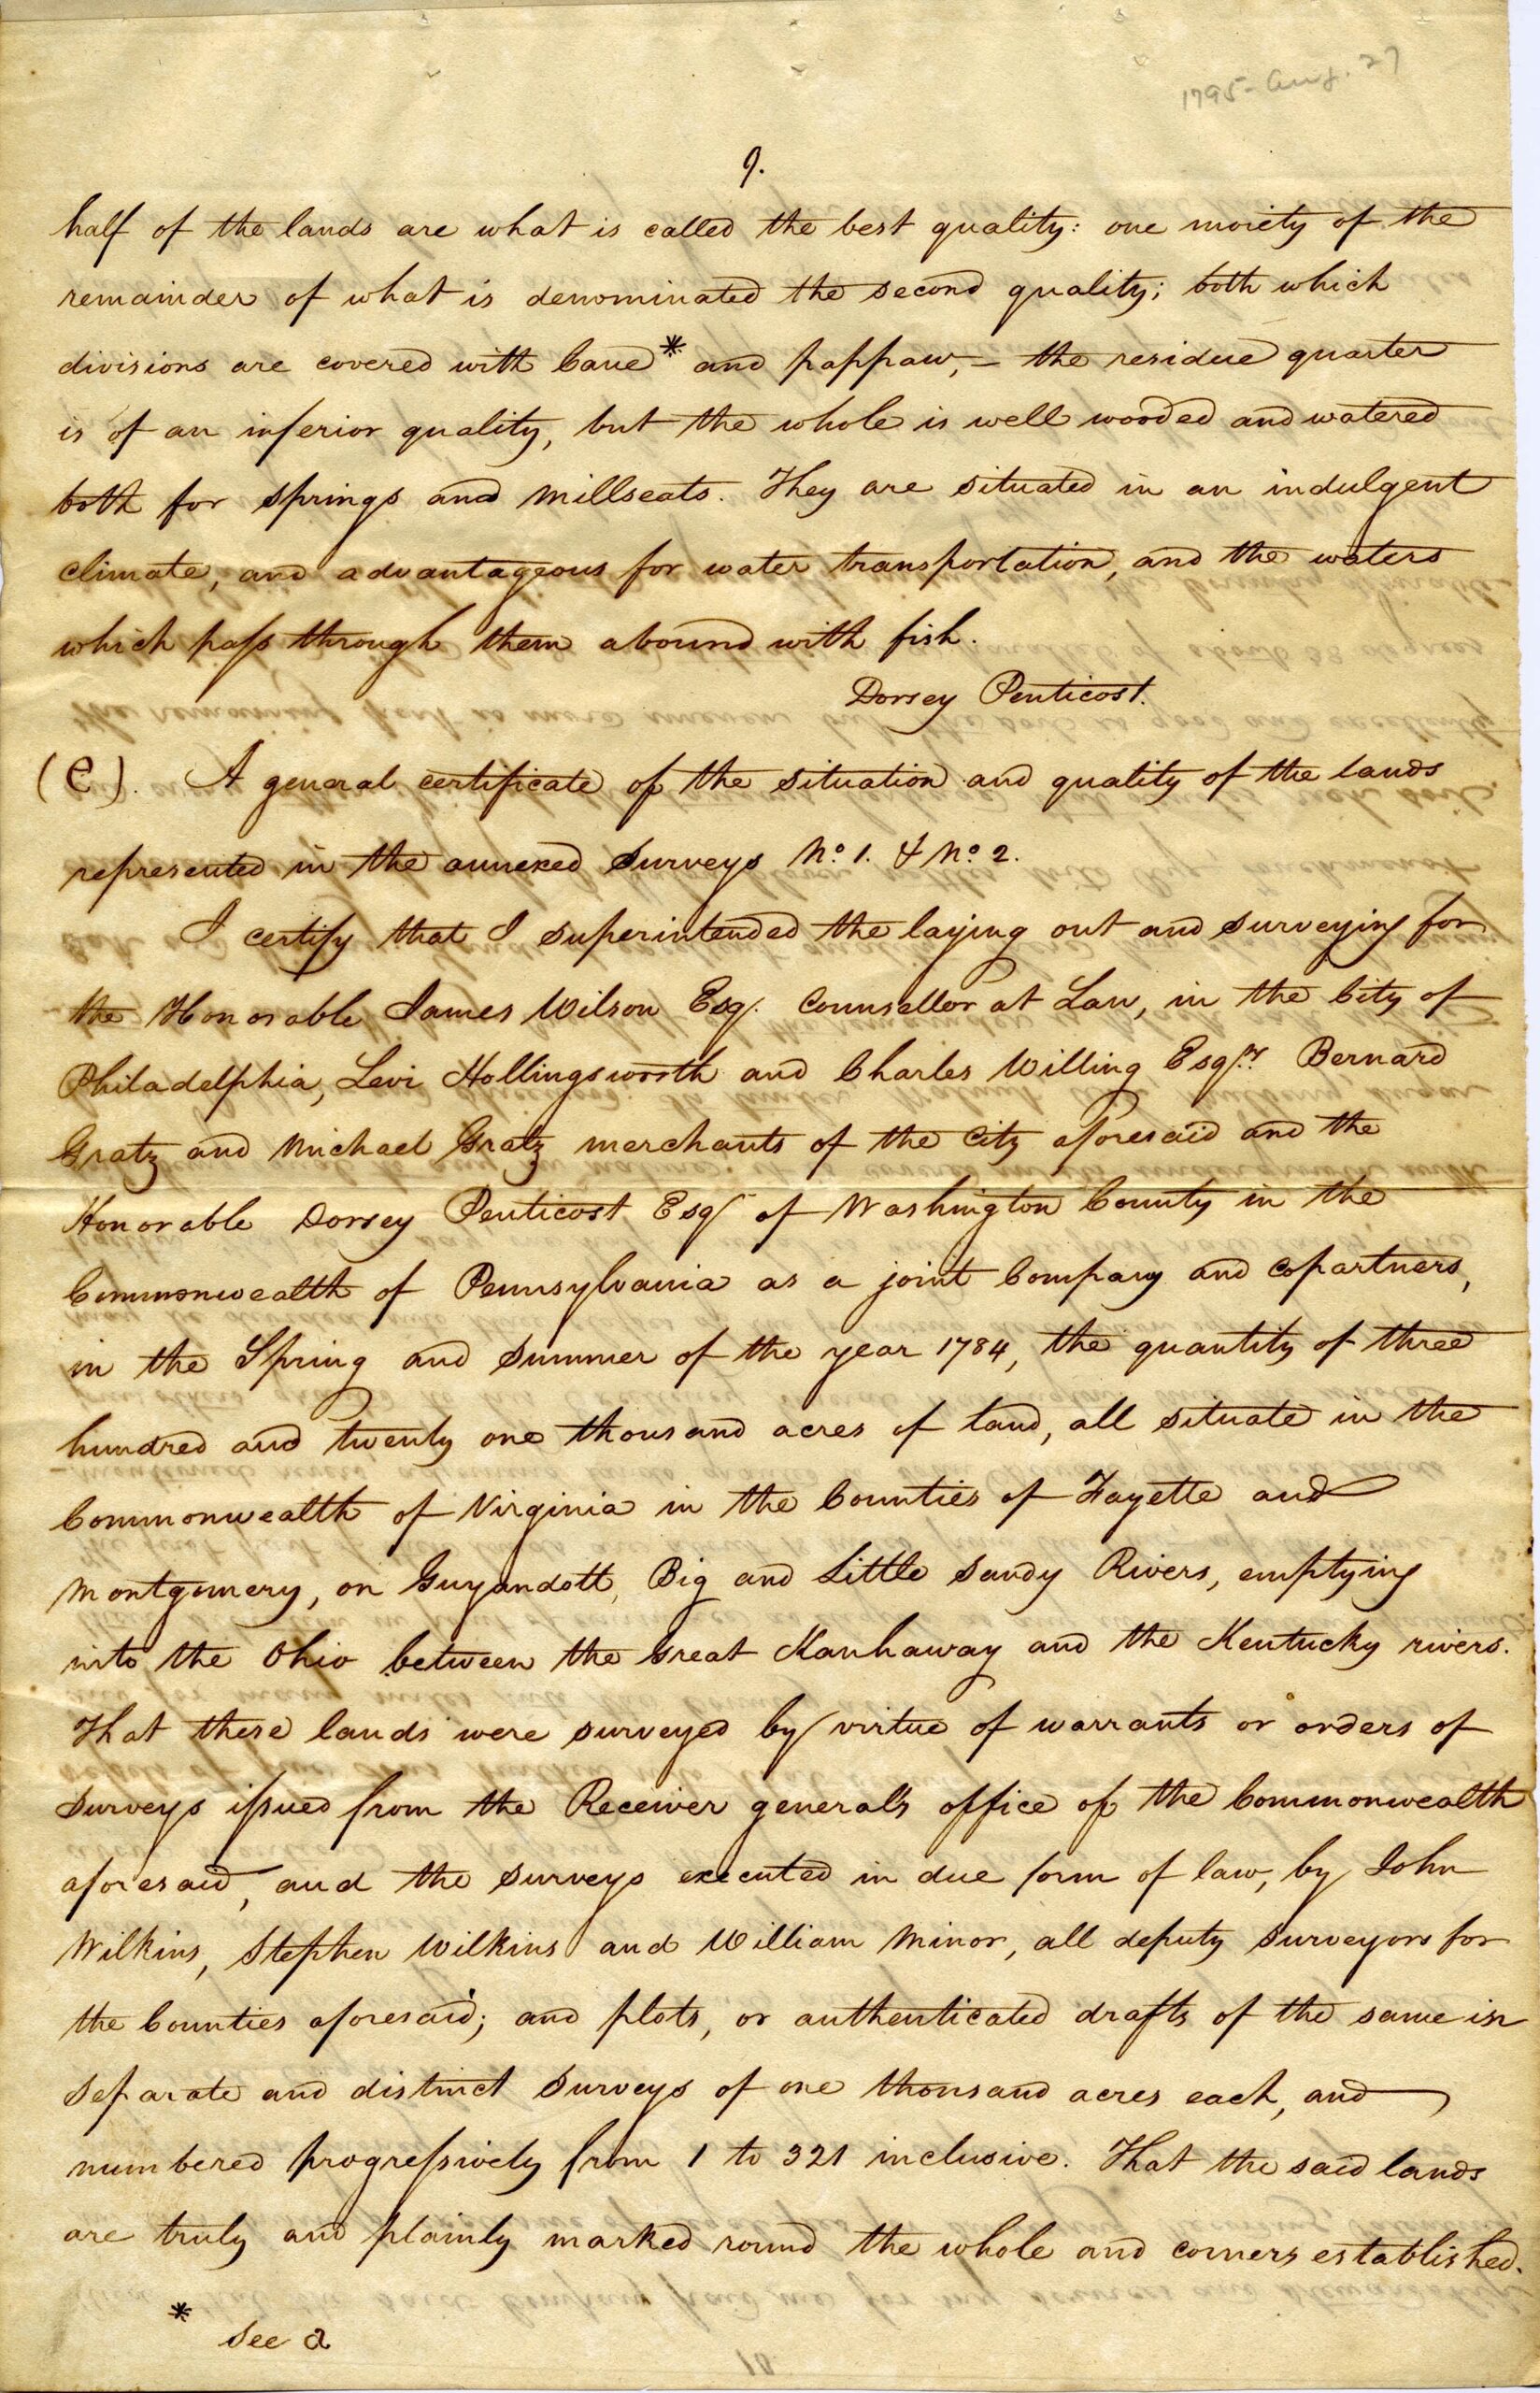 1795 - Aug. 27
9.
half of the lands are what is called the best quality: one moiety of the
remainder of what is denominated the second quality; both which
divisions are covered with Cane* and pappaw, – the residue quarter
is of an inferior quality, but the whole is well wooded and watered
both for springs and millseats. They are situated in an indulgent
climate, and advantageous for water transportation, and the waters
which pass through them abound with fish.
Dorsey Penticost.
(e). A general certificate of the situation and quality of the lands
represented in the annexed Surveys No. 1. & No. 2.
I certify that I superintended the laying out and surveying for
the Honorable James Wilson Esqr. Counsellor at Law, in the City of
Philadelphia, Levi Hollingsworth and Charles Willing Esqrs. Bernard
Gratz and Michael Gratz merchants of the City aforesaid and the
Honorable Dorsey Penticost Esqr of Washington County in the
Commonwealth of Pennsylvania as a joint Company and copartners,
in the Spring and Summer of the year 1784, the quantity of three
hundred and twenty one thousand acres of land, all situate in the
Commonwealth of Virginia in the Counties of Fayette and
Montgomery, on Guyandott, Big and Little Sandy Rivers, emptying
into the Ohio between the Great Kanhaway and the Kentucky rivers.
That these lands were surveyed by virtue of warrants or orders of
Surveys issued from the Receiver general's office of the Commonwealth
aforesaid, and the Surveys executed in due form of law, by John
Wilkins, Stephen Wilkins and William Minor, all deputy Surveyors for
the Counties aforesaid; and plots, or authenticated drafts of the same in
separate and distinct Surveys of one thousand acres each, and
numbered progressively from 1 to 321 inclusive. That the said lands
are truly and plainly marked round the whole and corners established.
* See a